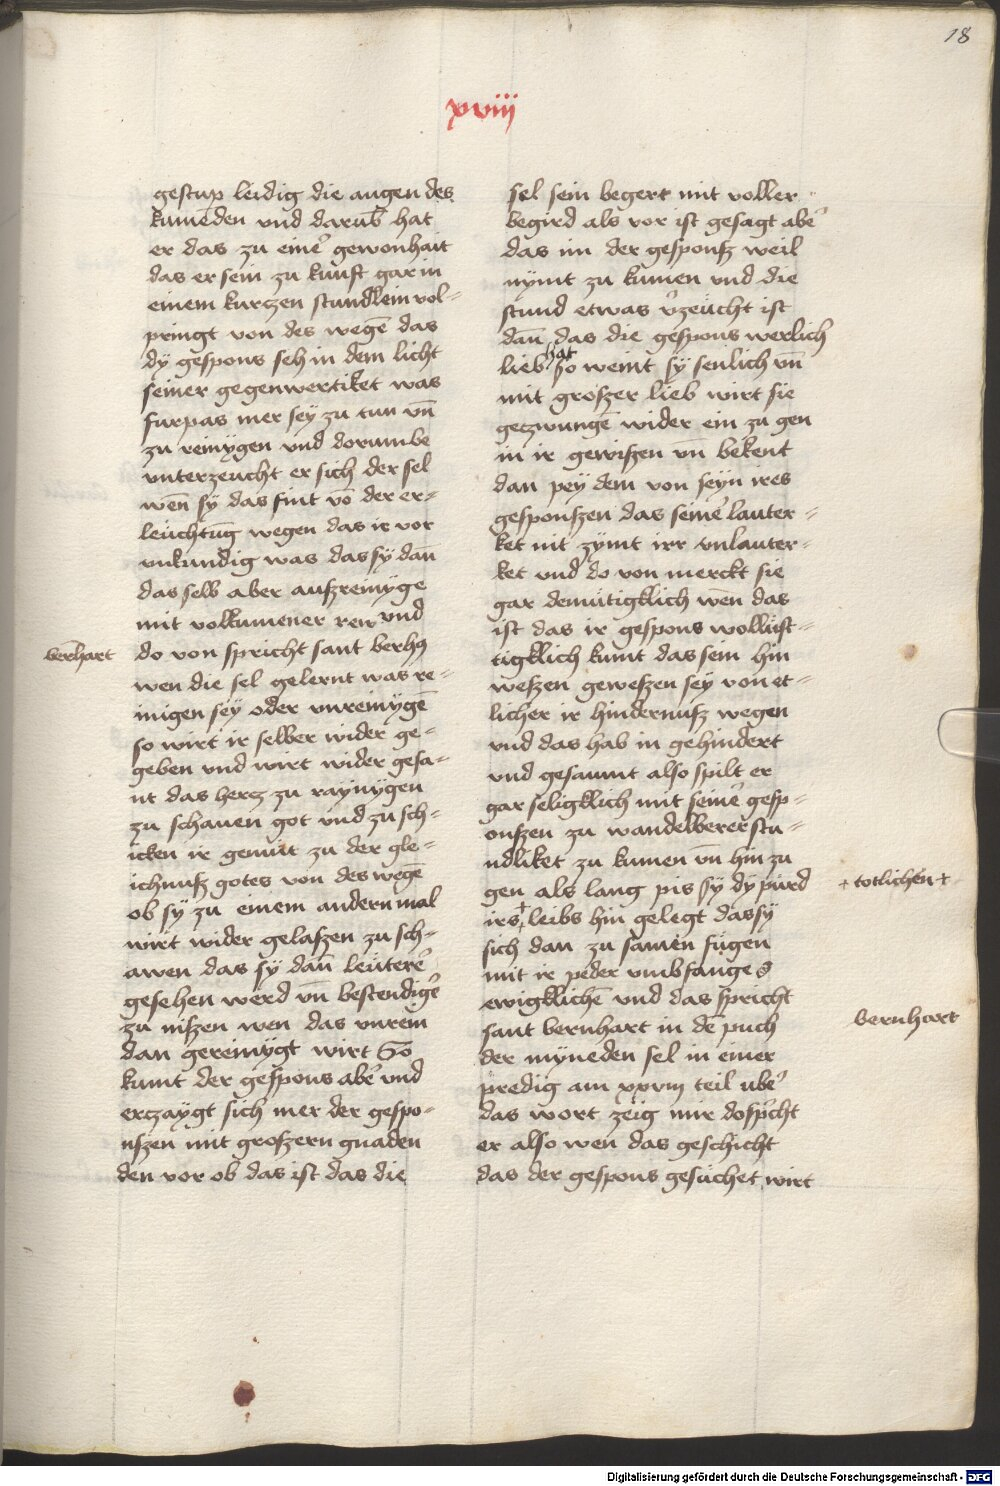 18
xviii
gestup leidig die augen des
kumēden vnd darūb hat
er das zu einē gewonhait
das er sein zu kunft gar in
einem kurczen stundlein vol=
pringt von des wegē das
dy gespons seh in dem licht
seiner gegenwertiket was
furpas mer sey zu tun vn̄
zu reinygen vnd dorumbe
vnterzeucht er sich der sel
wēn sy das fint vō der er=
leuchtūg wegen das ir vor
vnkundig was das sy dan̄
das selb aber aufzreinyge
mit volkumener rew vnd
bernhart
do von spricht sant berhꝰ
wen die sel gelernt was re=
inigen sey oder vnreinygē
so wirt ir selber wider ge=
geben vnd wirt wider gesa=
nt das hercz zu raynygen
zu schauen got vnd zu sch=
icken ir gemüt zu der gle=
ichnufz gotes von des wegē
ob sy zu einem andern mal
wirt wider gelafzen zu sch=
awen das sy dan̄ leuterē
gesehen werd vn̄ bestendigē
zu nifzen wen das vnrein
dan gereinygt wirt So
kumt der gespons abē vnd
erczaygt sich mer der gespo=
nfzen mit grofzern gnaden
den vor ob das ist das die
sel sein begert mit voller
begird als vor ist gesagt abē
das im der gesponfz weil
nymt zu kumen vnd die
stund etwas v̄zeucht ist
dan̄ das die gespons werlich
lieb hat so weint sy senlich vn̄
mit grofzer lieb wirt sie
geczwungē wider ein zu gen
in ir gewifzen vn̄ bekent
dan pey dem von seyn ires
gesponfzen das seinē lauter=
ket nit zymt irr vnlauter=
ket vnd do von merckt sie
gar demütigklich wēn das
ist das ir gespons wollust=
tigklich kumt das sein hin
wefzen gewefzen sey von et=
licher ir hindernufz wegen
vnd das hab in gehindert
vnd gesaumt also spilt er
gar seligklich mit seinē gesp=
onfzen zu wandelberer stu=
ndliket zu kumen vn̄ hin zu
gen als lang pis sy dy pürd
+ totlichen +
irs + leibs hin gelegt das sy
sich dan zu samen fügen
mit ir peder vmbfange
ewigklichē vnd das spricht
bernhart
sant bernhart in dē puch
der myneden sel in einer
predig am xxviij teil ubē
das wort zeig mir do spc̄ht
er also wen das geschicht
das der gespons gesuchet wirt
Digitalisierung gefördert durch die Deutsche Forschungsgemeinschaft - DFG